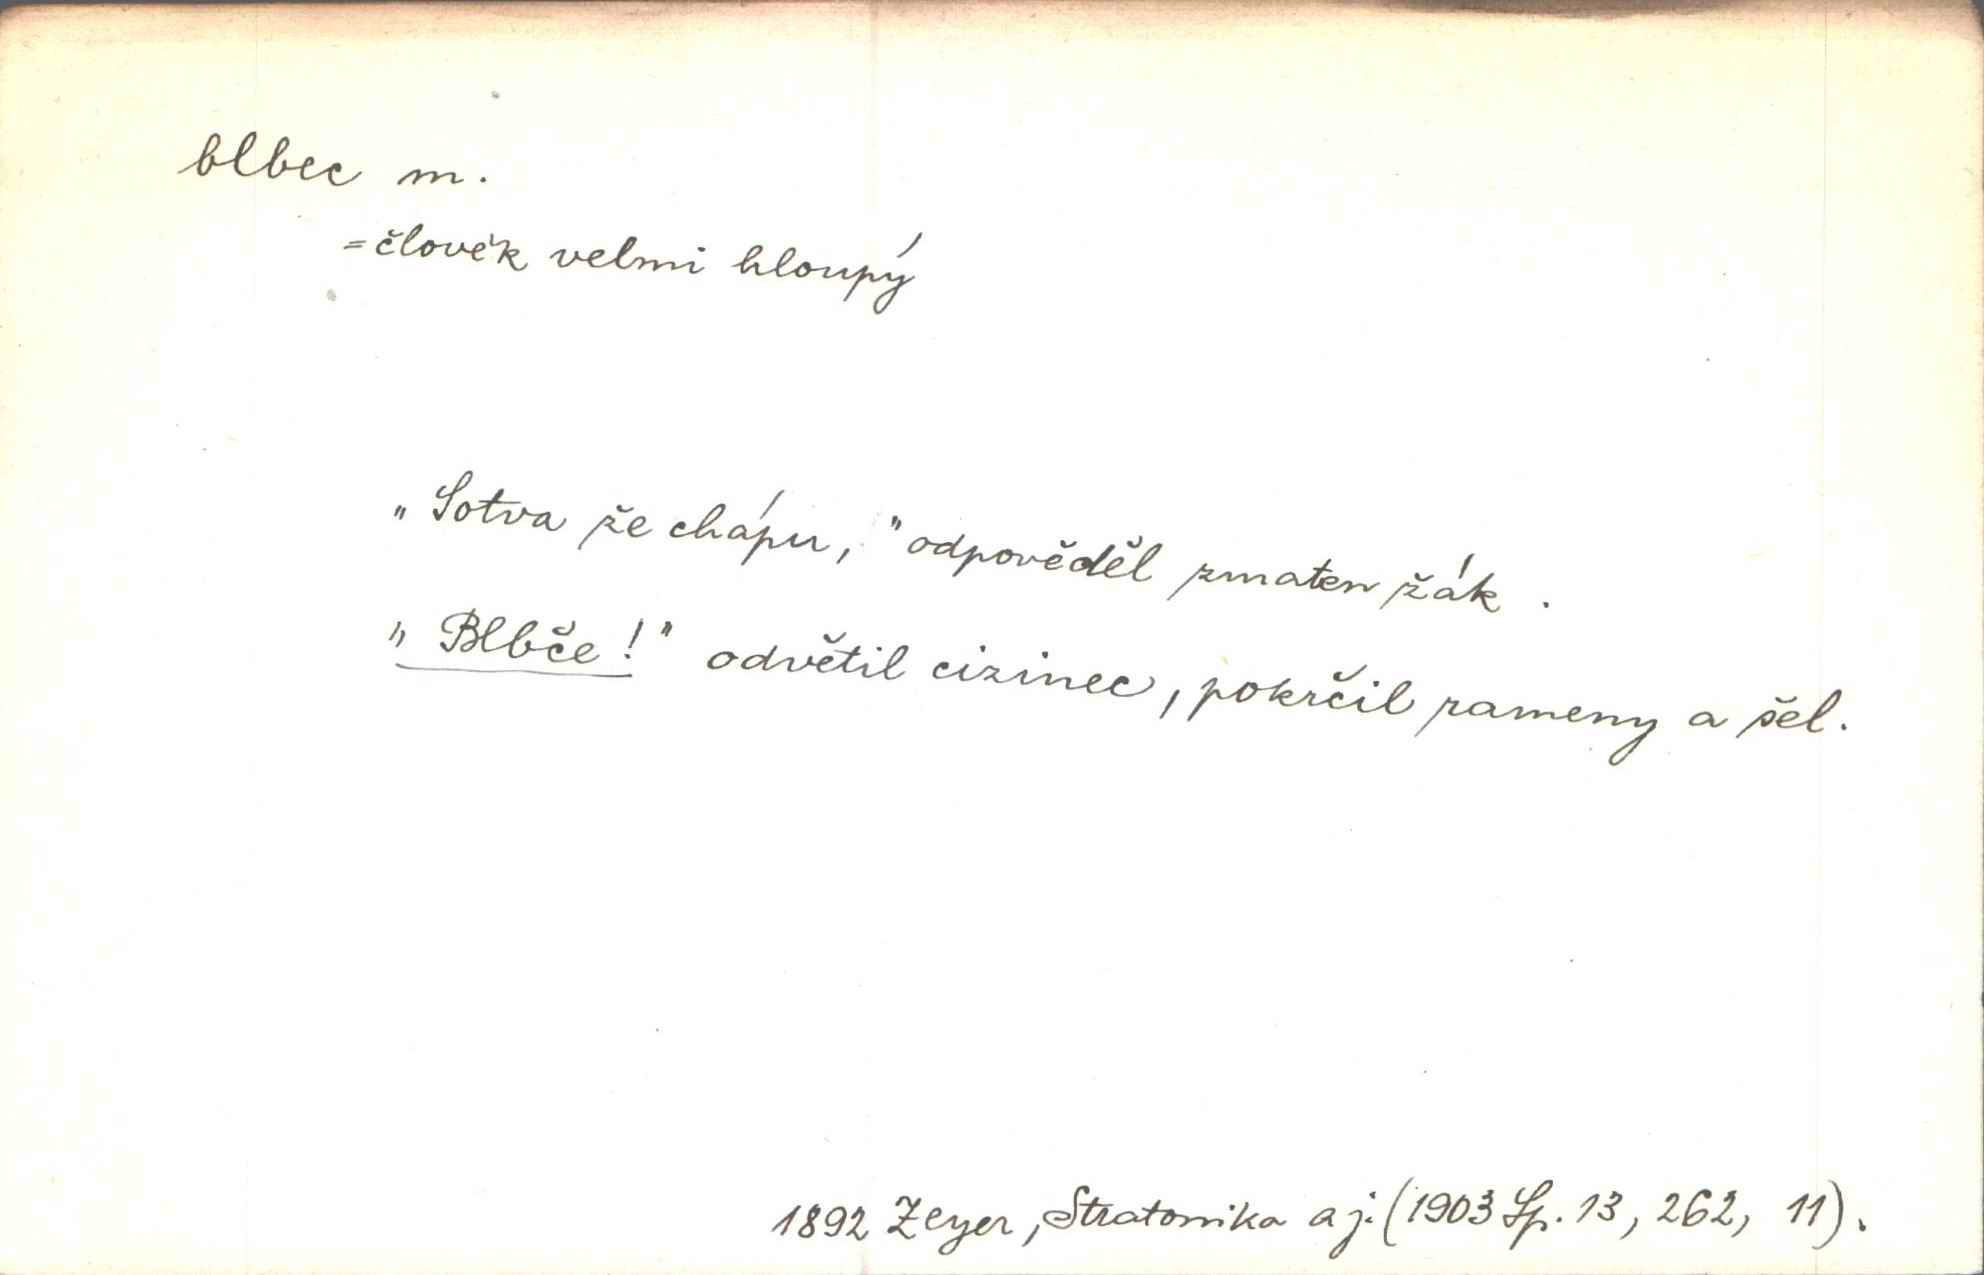 blbec m.
= člověk velmi hloupý
„Sotva že chápu,” odpověděl zmaten žák.
„Blbče!” odvětil cizinec, pokrčil rameny a šel.
1892 Zeyer, Stratonika a j. (1903 Sp. 13, 262, 11).